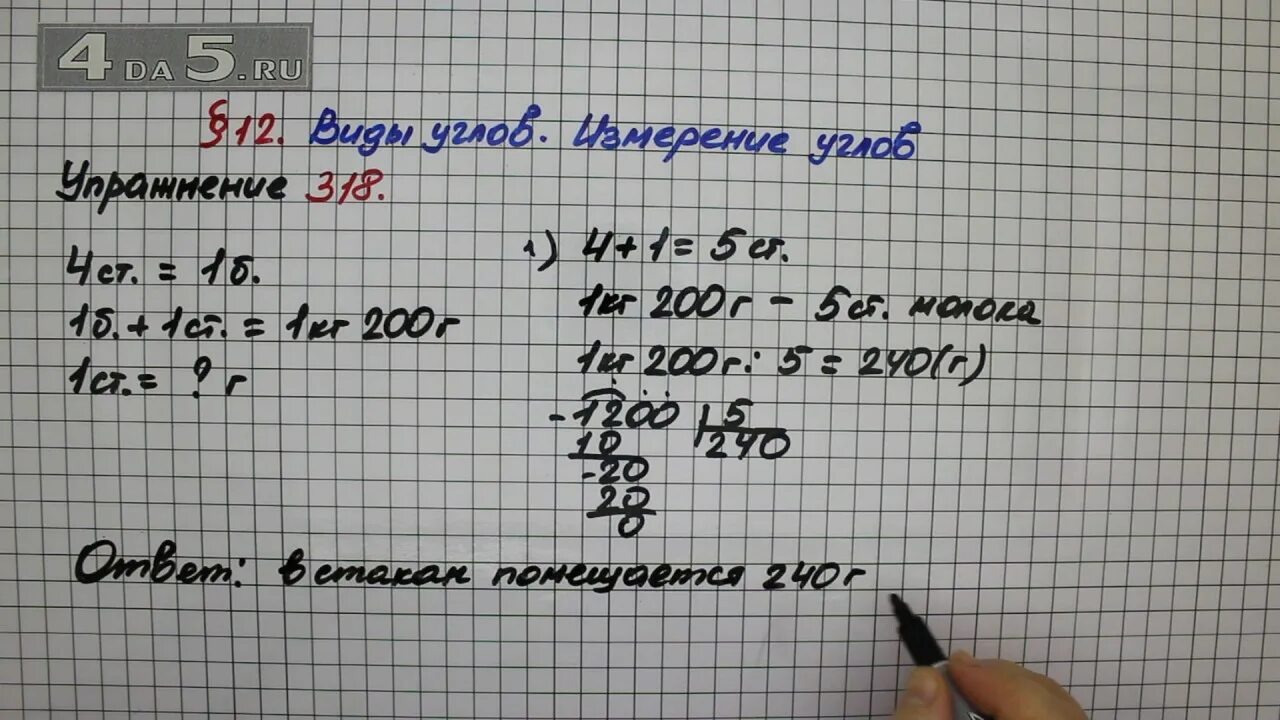 4DA5.RU
§12. Виды углов. Измерение углов
Упражнение 318.
4ст. = 1б.
1б. + 1ст. = 1кг 200г
1ст. = ? г
1) 4 + 1 = 5 ст.
1кг 200г - 5ст. молока
1кг 200г : 5 = 240(г)
-1200 | 5
10 240
-20
20
0
Ответ: в стакан помещается 240г